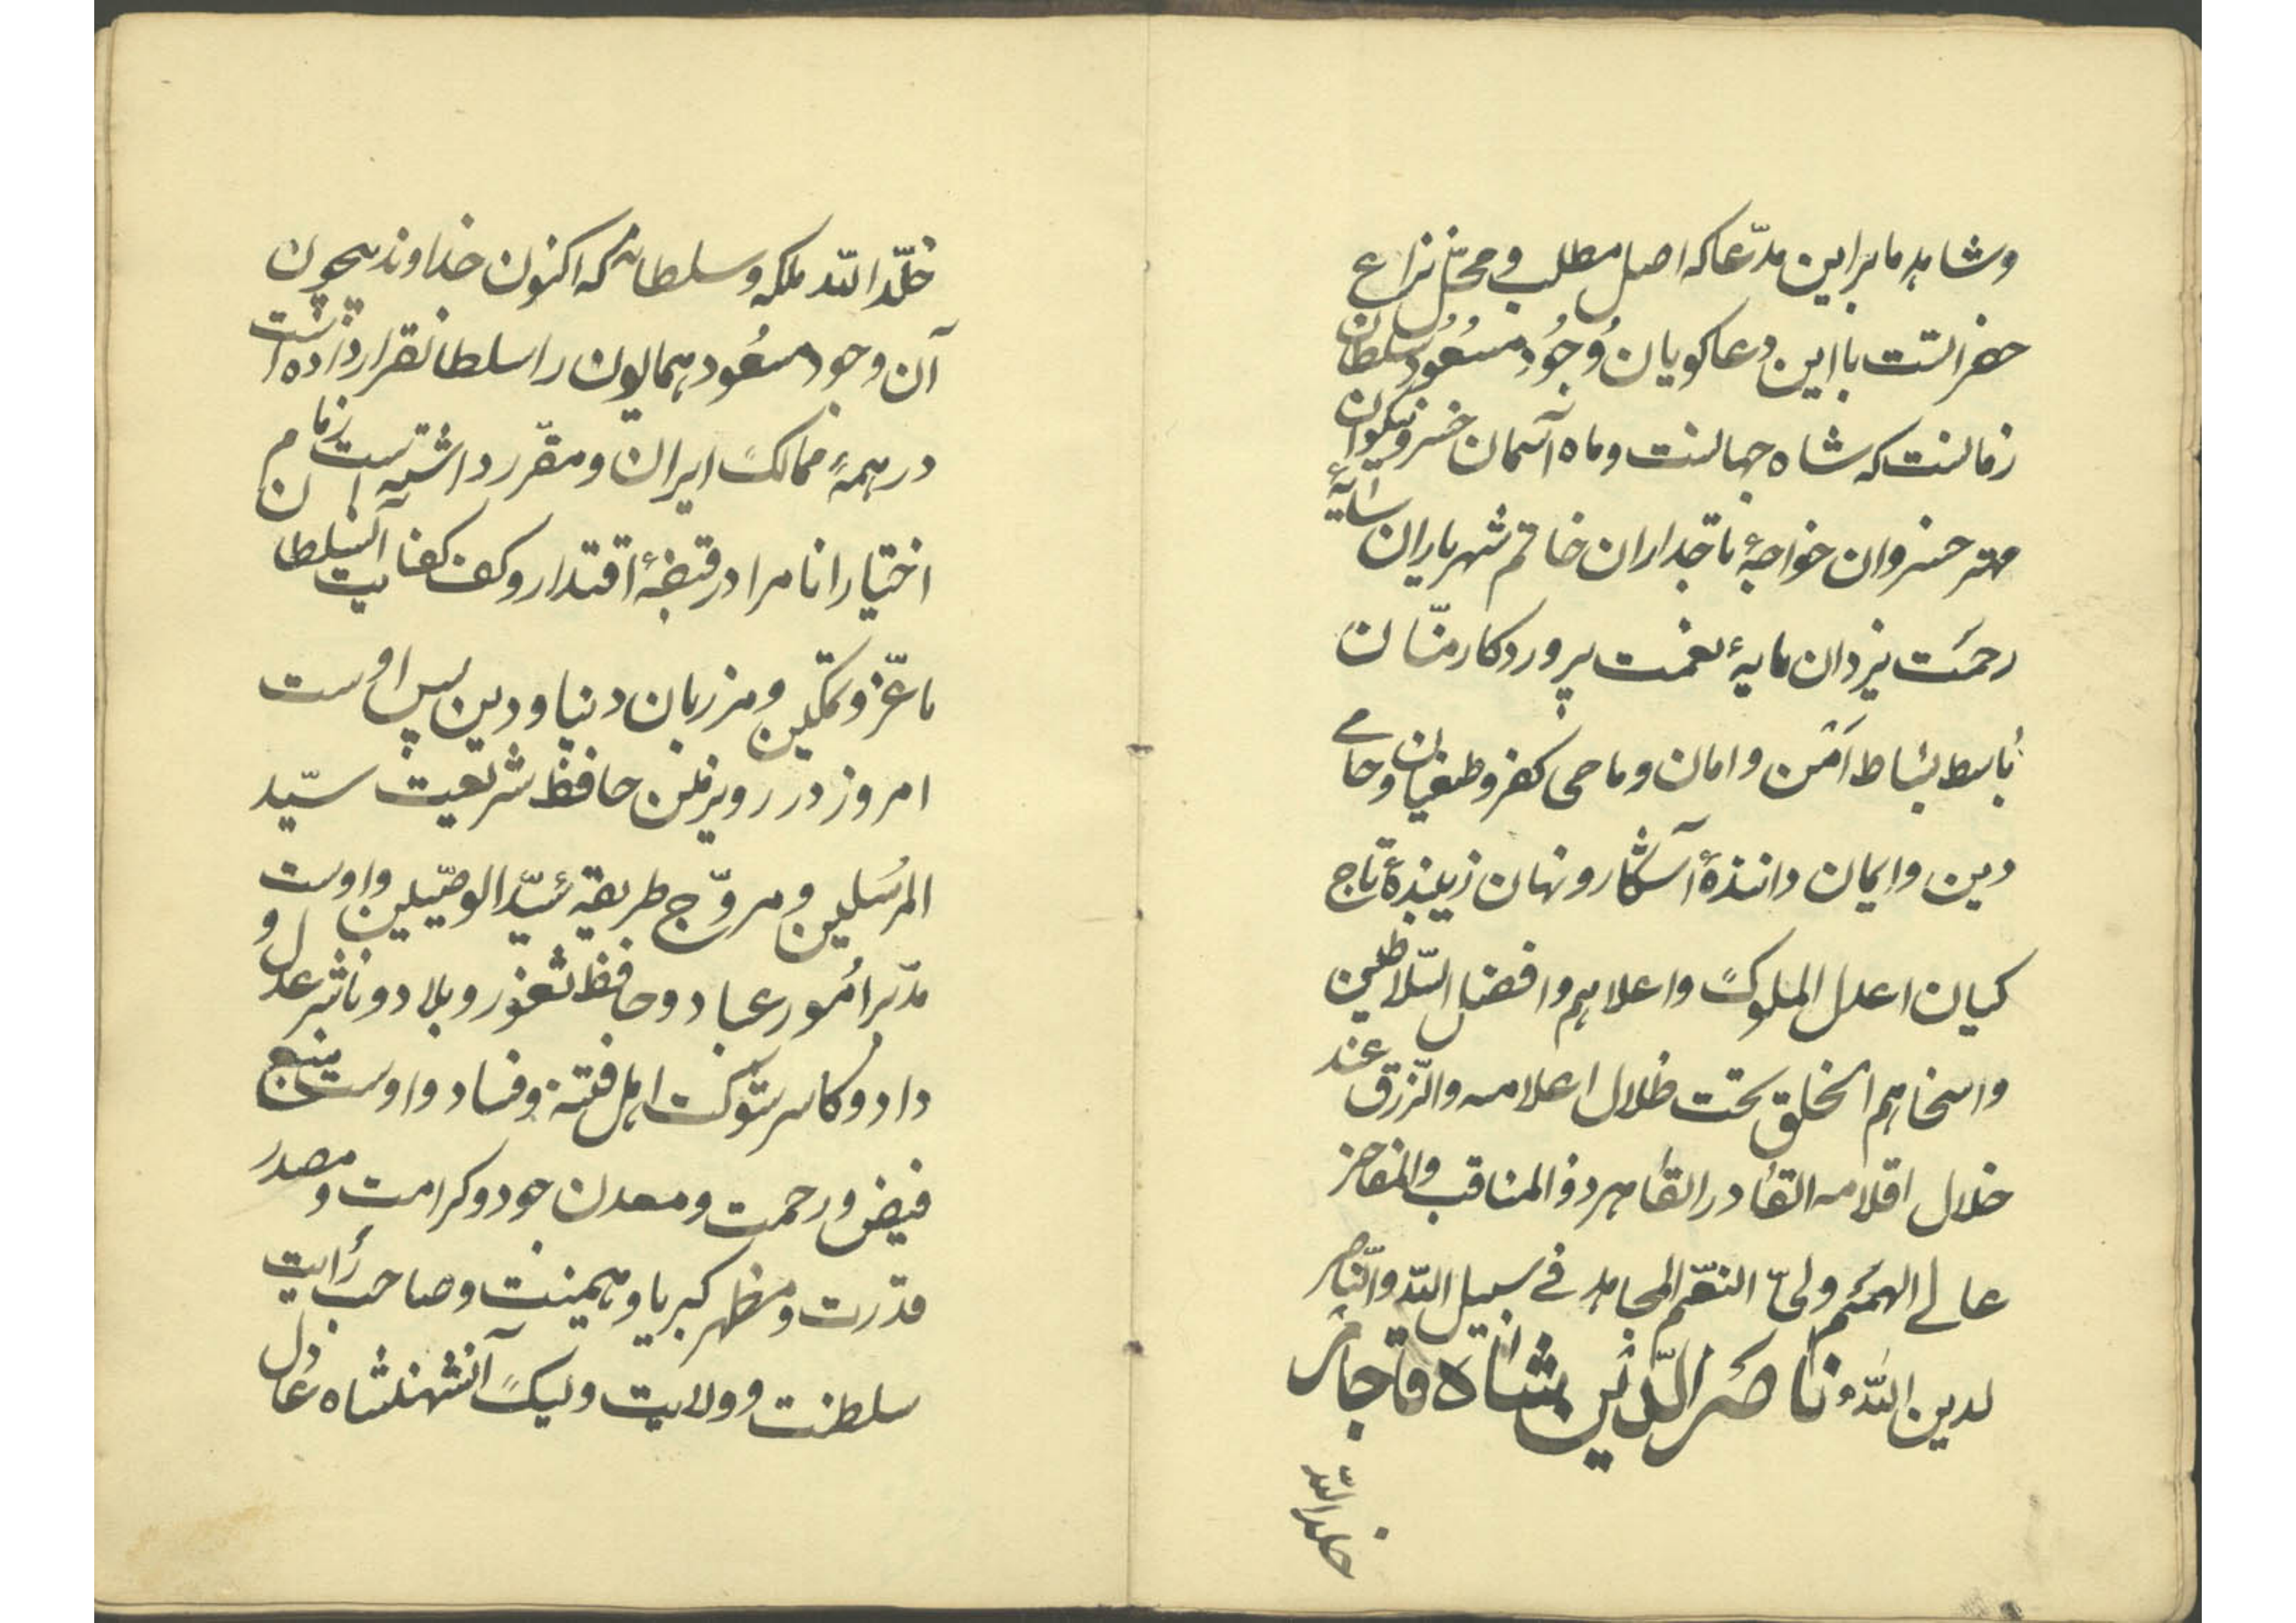 وشاهد ما بر این مدّعا که اصل مطلب و محلّ نزاع
حضراتست با این دعاکویان وُجُود مسعُود سلطان
زمانست که شاه جهانست و ماه آسمان خسرو نیکوان
مهتر خسروان خواجهٔ تاجداران خاتم شهریاران سایهٔ
رحمَت یزدان مایهٔ نعمت پروردکار منّان
باسط بساط اَمْن و امان و ماحی کفر و طغیان و حامی
دین و ایمان دانندهٔ آشکار و نهان زیبندهٔ تاج
کیان اعدل الملوک واعلاهم وافضل السّلاطین
واسخاهم الخلق تحت ظلال اعلامه والرّزق عند
خلال اقلامه القادر القاهر ذو المناقب والمفاخر
عالی الهمَم ولیّ النعَم المجاهد فی سبیل اللّه والنّاصر
لدین اللّه ناصَر الدّین شاه قاجار
خلد اللّه
خلّد اللّه ملکه وسلطانه که اکنون خداوند بیچون
آن وجود مسعُود همایون را سلطان قرار داده است
در همهٔ ممالک ایران و مقرّر داشته است زمام
اختیار انام را در قبضهٔ اقتدار و کف کفایت آن سلطان
با عزّ و تمکین و مرزبان دنیا و دین پس اوست
امروز در روی زمین حافظ شریعت سیّد
المرسَلین و مروّج طریقه سَیّد الوصیّین و اوست
مدبّر اُمُور عباد و حافظ ثغور و بلاد و ناشر عدل و
داد و کاسر شوکت اهل فتنه و فساد و اوست منبع
فیض و رحمت و معدن جود و کرامت و مصدر
قدرت و مظهر کبریا و هیمنت و صاحب رایت
سلطنت و ولایت ولیک آنشهنشاه عادل